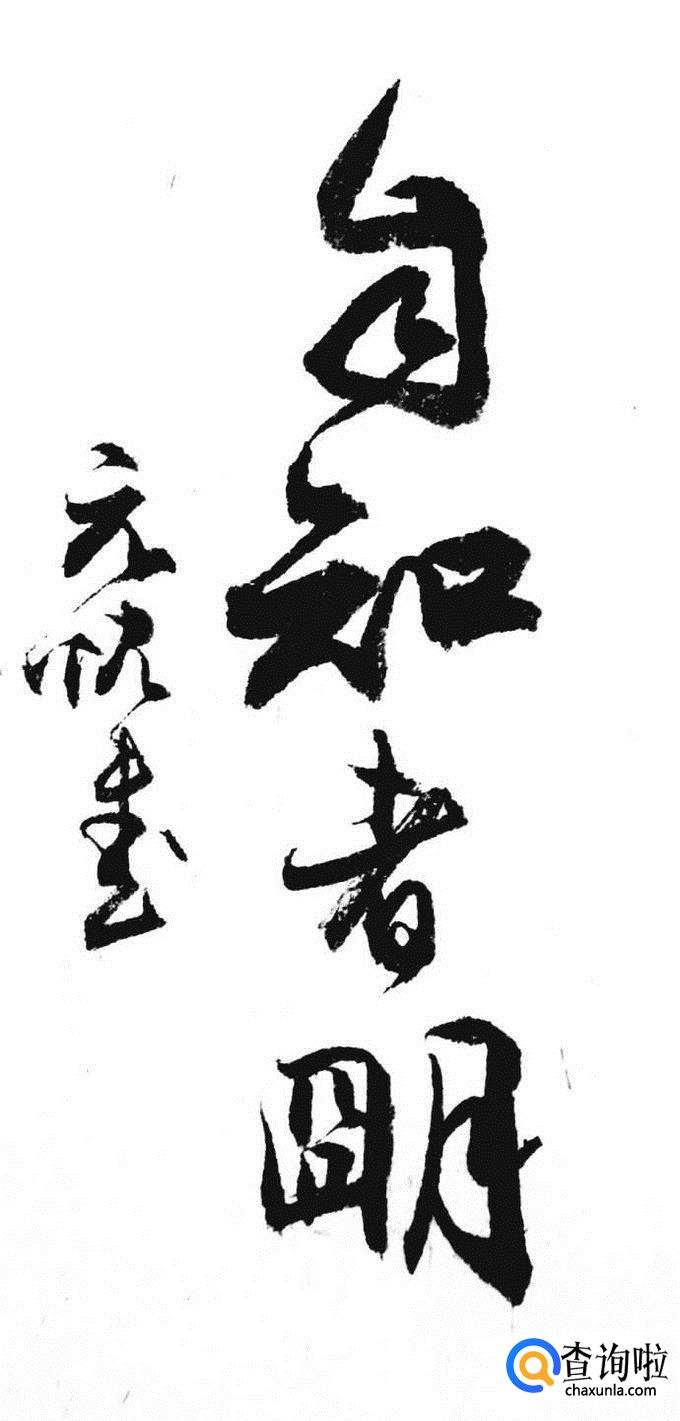 自知者明
元忱书
查询啦
chaxunla.com